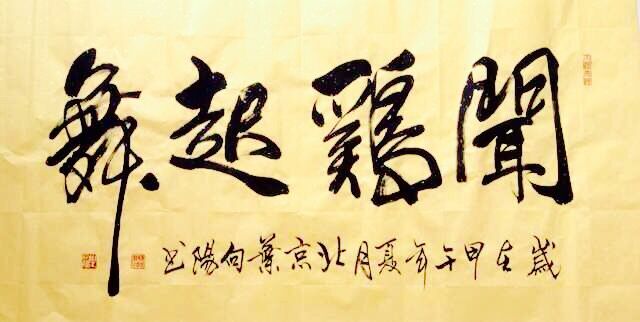 聞鷄起舞
歲在甲午年夏月北京葉向陽书